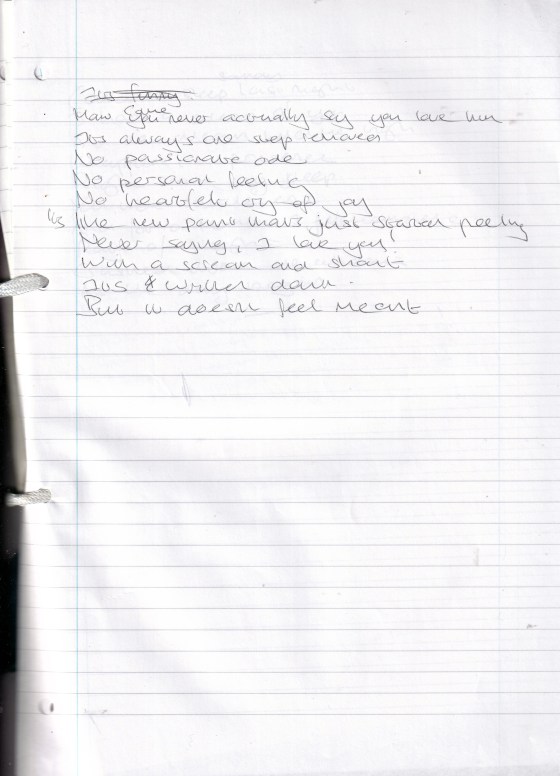 Its funny
How Come you never actually say you love him
Its always one step removed
No passionate ode
No personal feeling
No heartfelt cry of joy
Its like new paint thats just started peeling
Never saying, I love you!
With a scream and shout
Its written down.
But it doesnt feel meant